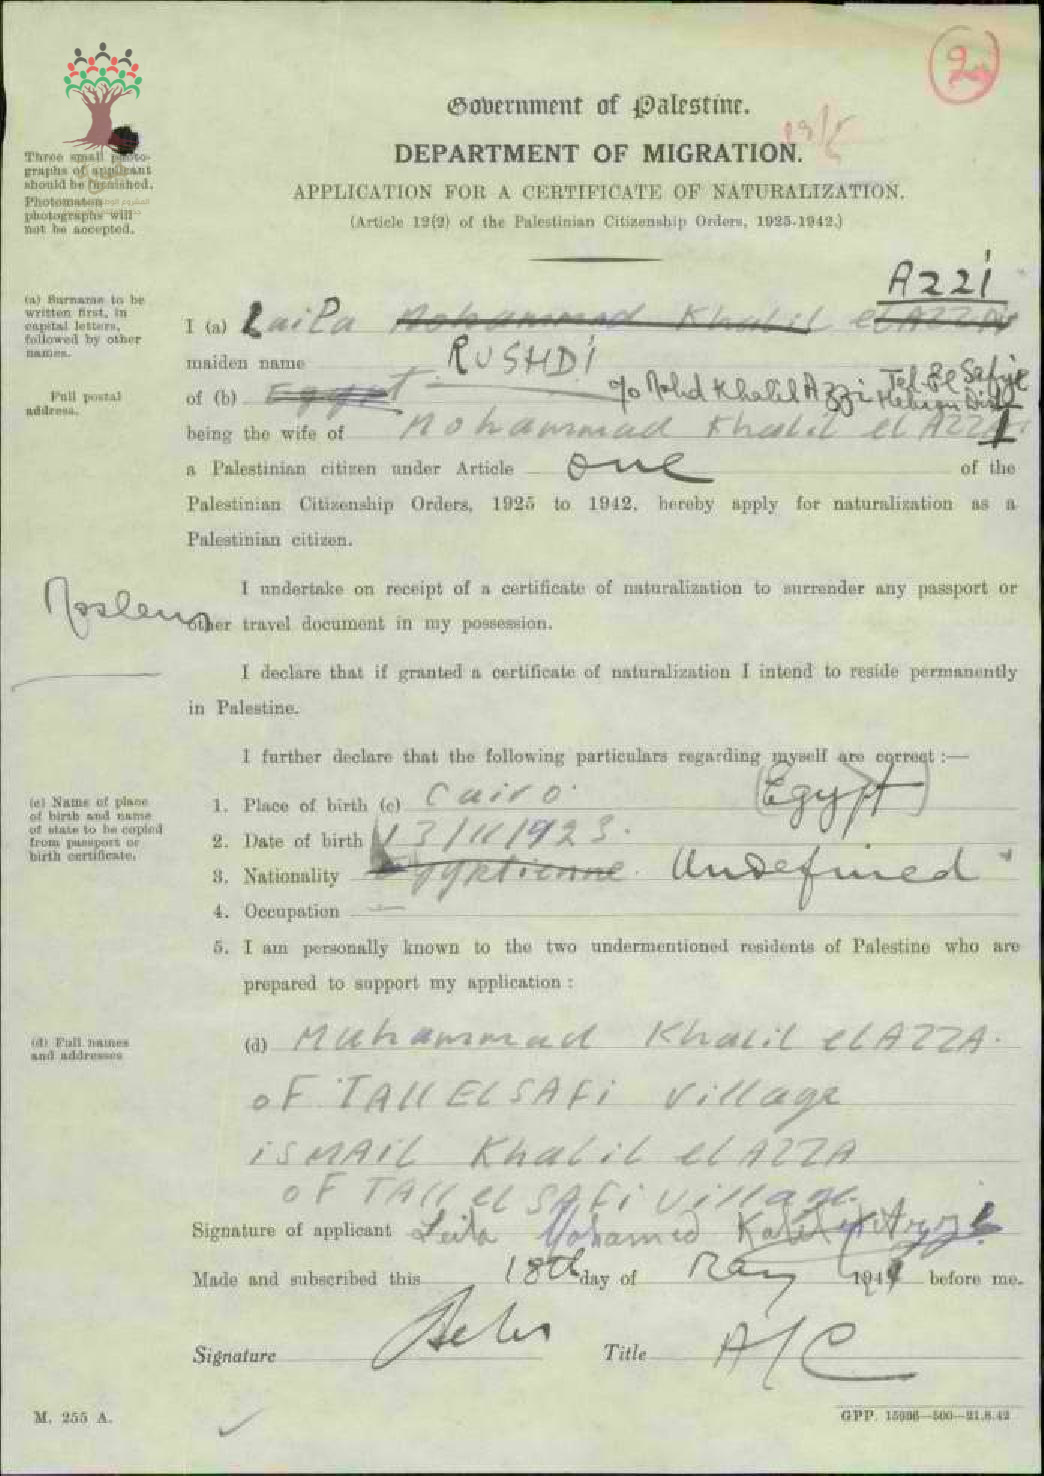 2
Government of Palestine.
19/5
DEPARTMENT OF MIGRATION.
APPLICATION FOR A CERTIFICATE OF NATURALIZATION.
(Article 12(2) of the Palestinian Citizenship Orders, 1925-1942.)
Three small photo-
graphs of applicant
should be furnished.
Photomaton
photographs will
not be accepted.
AZZI
(a) Surname to be
written first, in
capital letters,
followed by other
names.
I (a) Laila Mohammad Khalil el AZZA
maiden name RUSHDI
Full postal
address.
of (b) Egypt c/o Mohd Khalil Azzi Tel El Safiye
Hebron Dist
being the wife of Mohammad Khalil el AZZI
a Palestinian citizen under Article one of the
Palestinian Citizenship Orders, 1925 to 1942, hereby apply for naturalization as a
Palestinian citizen.
I undertake on receipt of a certificate of naturalization to surrender any passport or
Moslem
other travel document in my possession.
I declare that if granted a certificate of naturalization I intend to reside permanently
in Palestine.
I further declare that the following particulars regarding myself are correct :—
(c) Name of place
of birth and name
of state to be copied
from passport or
birth certificate.
1. Place of birth (c) Cairo. (Egypt)
2. Date of birth 13/11/1923.
3. Nationality Egyptienne. Undefined
4. Occupation —
5. I am personally known to the two undermentioned residents of Palestine who are
prepared to support my application :
(d) Full names
and addresses
(d) Muhammad Khalil el AZZA.
oF TAll El SAFi village
iSMAiL Khalil el AZZA
oF TAll el SAFi village.
Signature of applicant Leila Mohamed
Made and subscribed this 18th day of May 194 before me.
Signature Title A/C
M. 255 A.
GPP. 15936—500—21.8.42